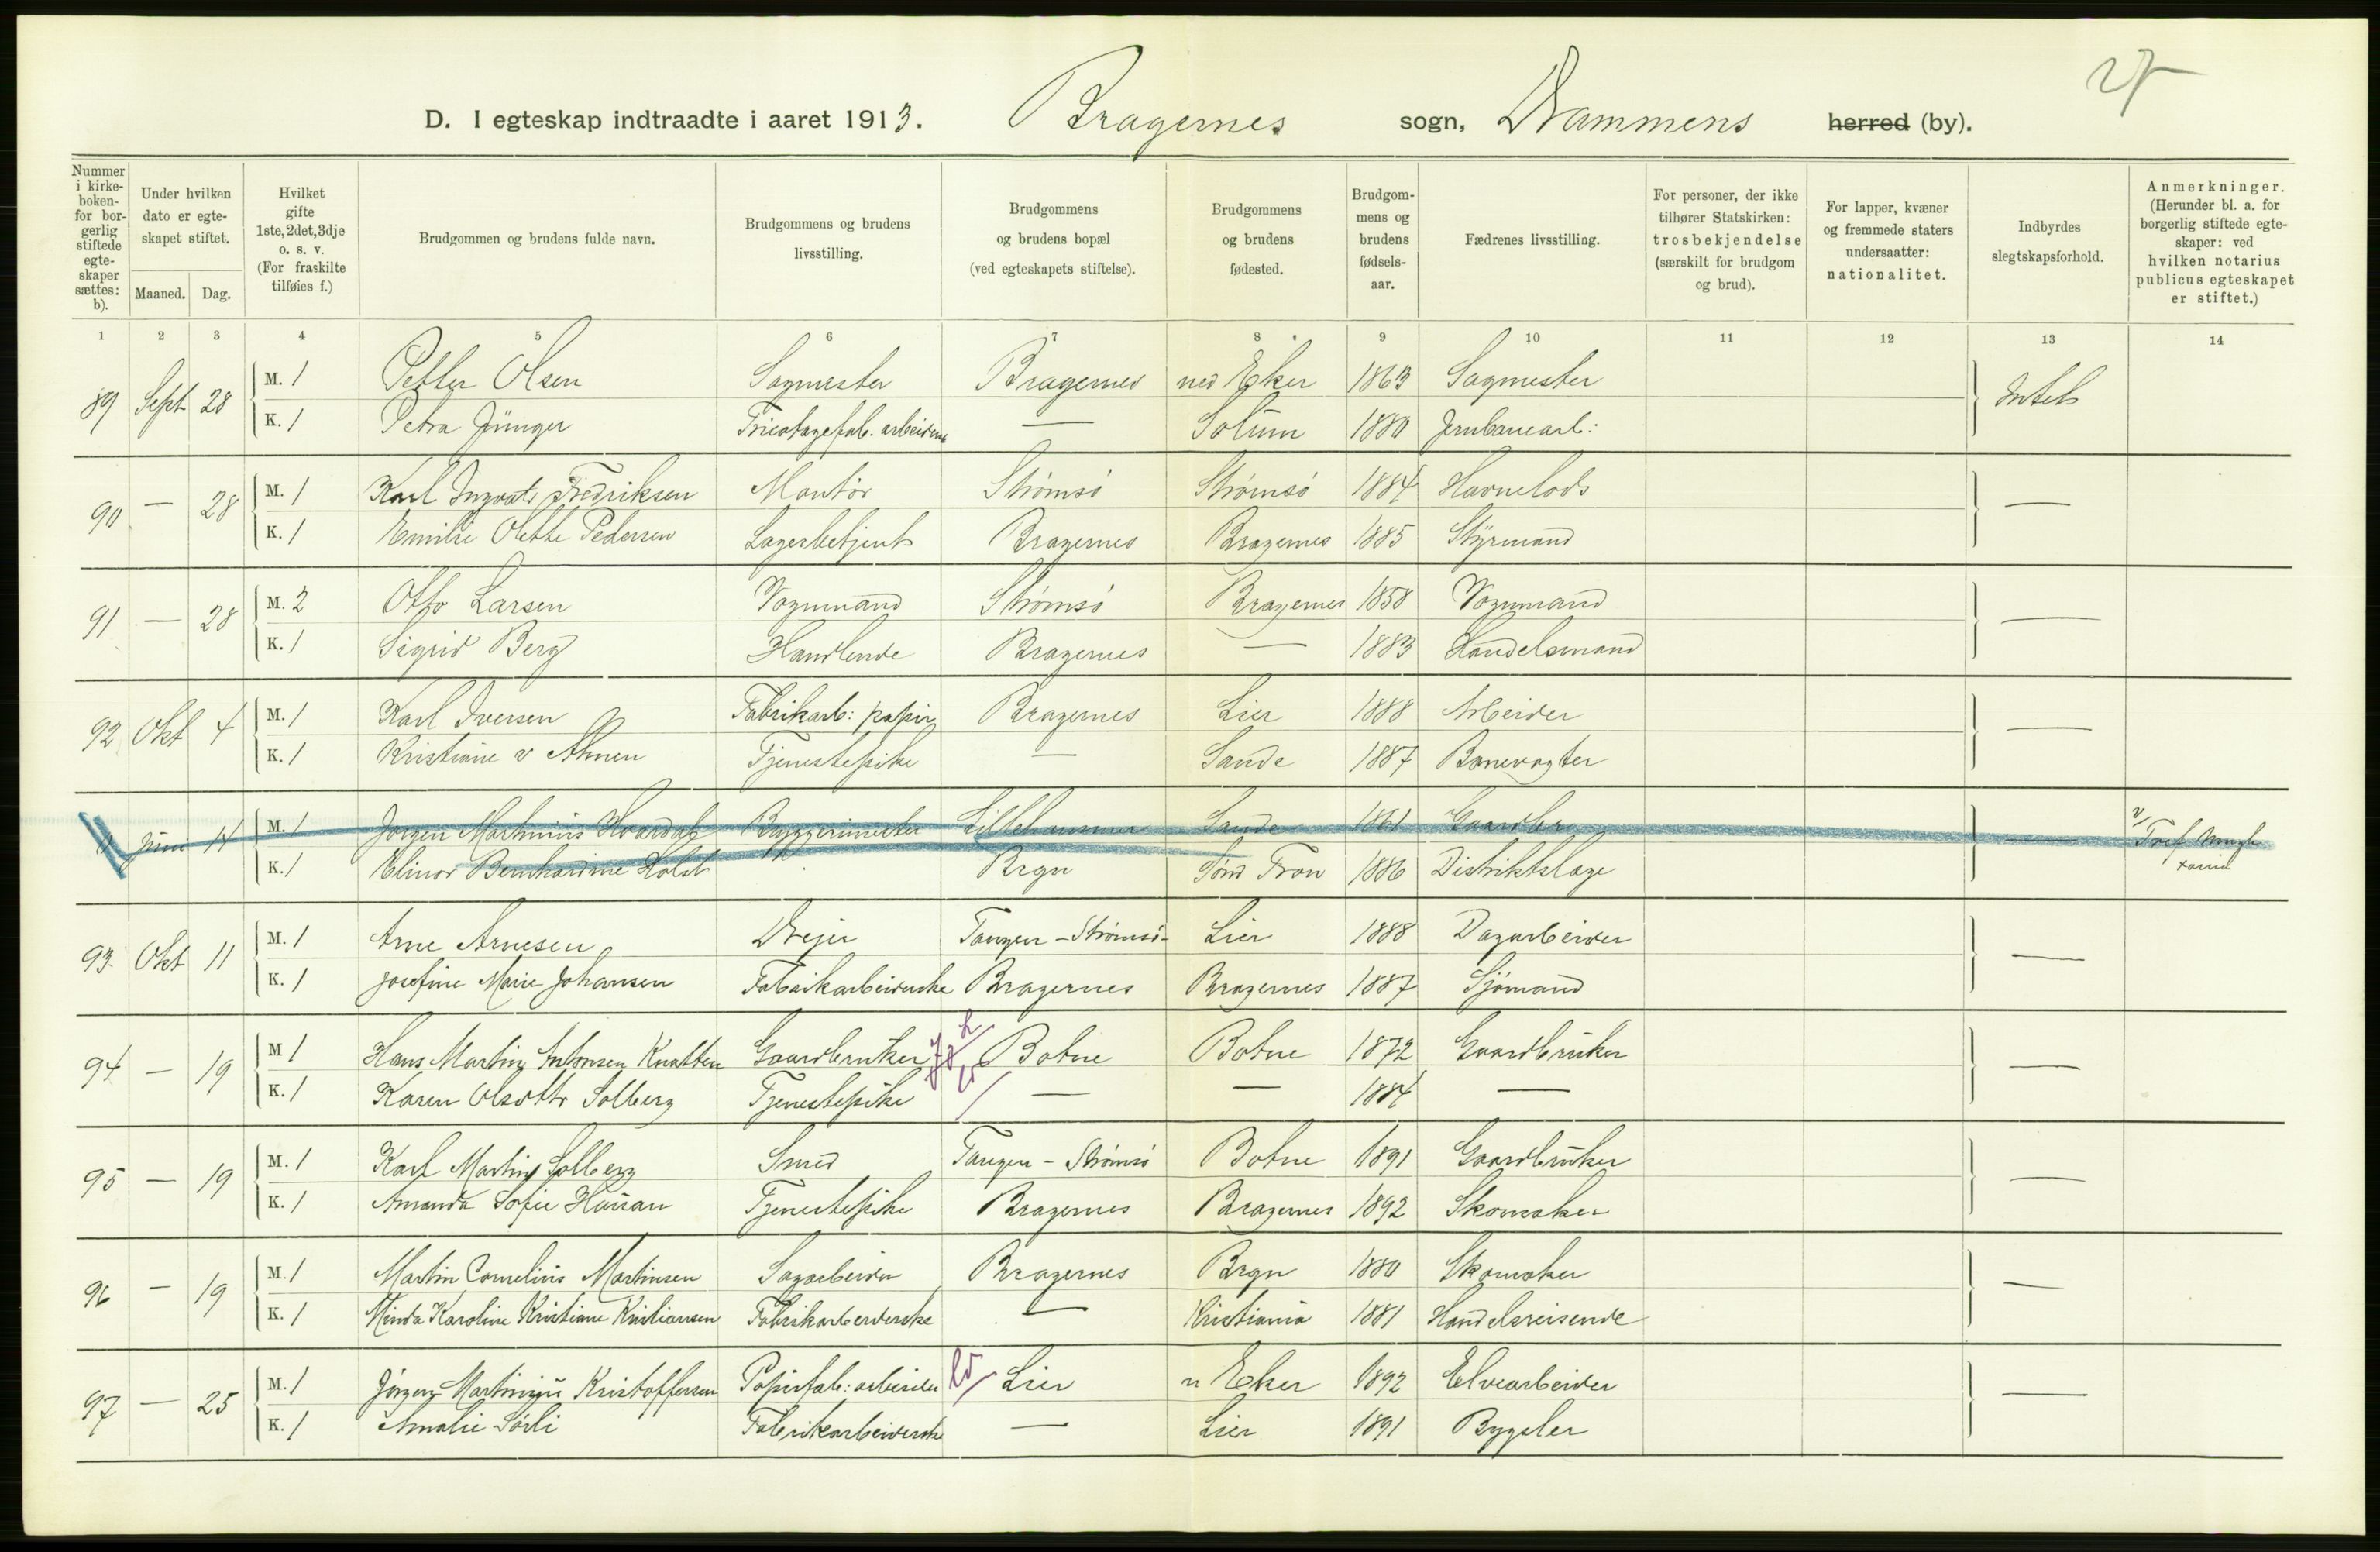 D. I egteskap indtraadte i aaret 1913. Bragernes sogn, Drammens herred (by).
Nummer i kirkeboken- for borgerlig stiftede egteskaper sættes: b).
Under hvilken dato er egteskapet stiftet.
Maaned. Dag.
Hvilket gifte 1ste, 2det, 3dje o. s. v. (For fraskilte tilføies f.)
Brudgommen og brudens fulde navn.
Brudgommens og brudens livsstilling.
Brudgommens og brudens bopæl (ved egteskapets stiftelse).
Brudgommens og brudens fødested.
Brudgommens og brudens fødselsaar.
Fædrenes livsstilling.
For personer, der ikke tilhører Statskirken: trosbekjendelse (særskilt for brudgom og brud).
For lapper, kvæner og fremmede staters undersaatter: nationalitet.
Indbyrdes slegtskapsforhold.
Anmerkninger. (Herunder bl. a. for borgerlig stiftede egteskaper: ved hvilken notarius publicus egteskapet er stiftet.)
1 2 3 4 5 6 7 8 9 10 11 12 13 14
89 Sept 28 M. 1 Petter Olsen Sagmester Bragernes ned Eker 1863 Sagmester Intet
K. 1 Petra Jünger Tricotagefab. arbeiderske — Solum 1880 Jernbanearb:
90 — 28 M. 1 Karl Ingvald Fredriksen Montör Strömsö Strömsö 1884 Havnelods —
K. 1 Emilie Olette Pedersen Lagerbetjent Bragernes Bragernes 1885 Styrmand
91 — 28 M. 2 Otto Larsen Vognmand Strömsö Bragernes 1858 Vognmand —
K. 1 Sigrid Berg Handlende Bragernes — 1883 Handelsmand
92 Okt 4 M. 1 Karl Iversen Fabrikarb: papir Bragernes Lier 1888 Arbeider —
K. 1 Kristiane v Ahnen Tjenestepike — Sande 1887 Banevogter
Juni 14 M. 1 Jørgen Martinius Bryggerimester Lillehammer Sande 1861 Gaardbr —
K. 1 Elinor Bernhardine Holst Brgn Sönd Fron 1886 Distriktslæge
93 Okt 11 M. 1 Arne Arnesen Dreier Tangen - Strömsö - Lier 1888 Dagarbeider —
K. 1 Josefine Marie Johansen Fabrikarbeiderske Bragernes Bragernes 1887 Sjömand
94 — 19 M 1 Hans Martin Antonsen Knatten Gaardbruker Botne Botne 1872 Gaardbruker —
K. 1 Karen Olsdttr Solberg Tjenestepike — — 1884 —
95 — 19 M. 1 Karl Martin Solberg Smed Tangen - Strömsö Botne 1891 Gaardbruker —
K. 1 Amanda Sofie Tjenestepike Bragernes Bragernes 1892 Skomaker
96 — 19 M. 1 Martin Cornelius Martinsen Sagarbeider Bragernes Brgn 1880 Skomaker —
K. 1 Minda Karoline Kristiane Kristiansen Fabrikarbeiderske — Kristiania 1881 Handelsreisende
97 — 25 M. 1 Jörgen Kristoffersen Papirfab: arbeider Lier n Eker 1892 Elvearbeider —
K. 1 Amalie Sörli Fabrikarbeiderske — Lier 1891 Bygsler